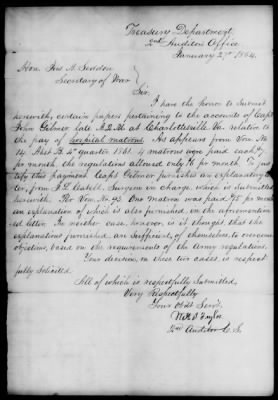 Treasury Department,
2nd Auditors Office,
January 27 1864.
Hon. Jas A. Seddon
Secretary of War
Sir:
I have the honor to submit
herewith, certain papers pertaining to the accounts of Capt
John Gelmer late A.Q.M. at Charlottesville Va. relative to
the pay of hospital matrons. It appears from Vou. No
14 Abst B. 4th quarter 1861, 4 matrons were paid each $
pr month, the regulations allowed only $6 pr month. To jus
tify this payment Capt Gelmer furnishes an explanatory let
ter, from J.L. Cabell, Surgeon in charge, which is submitted
herewith. Per Vou. No 93. One matron was paid $ pr month
an explanation of which is also furnished, on the aforemention
ed letter. In neither case, however, is it thought that the
explanations furnished are sufficient, of themselves, to overcome
objections, based on the requirements of the Army regulations.
Your decision, in these two cases is respect
fully solicited.
All of which is respectfully submitted,
Very Respectfully
Your Obdt Servt.
W.H.S. Taylor
2nd Auditor C.S.